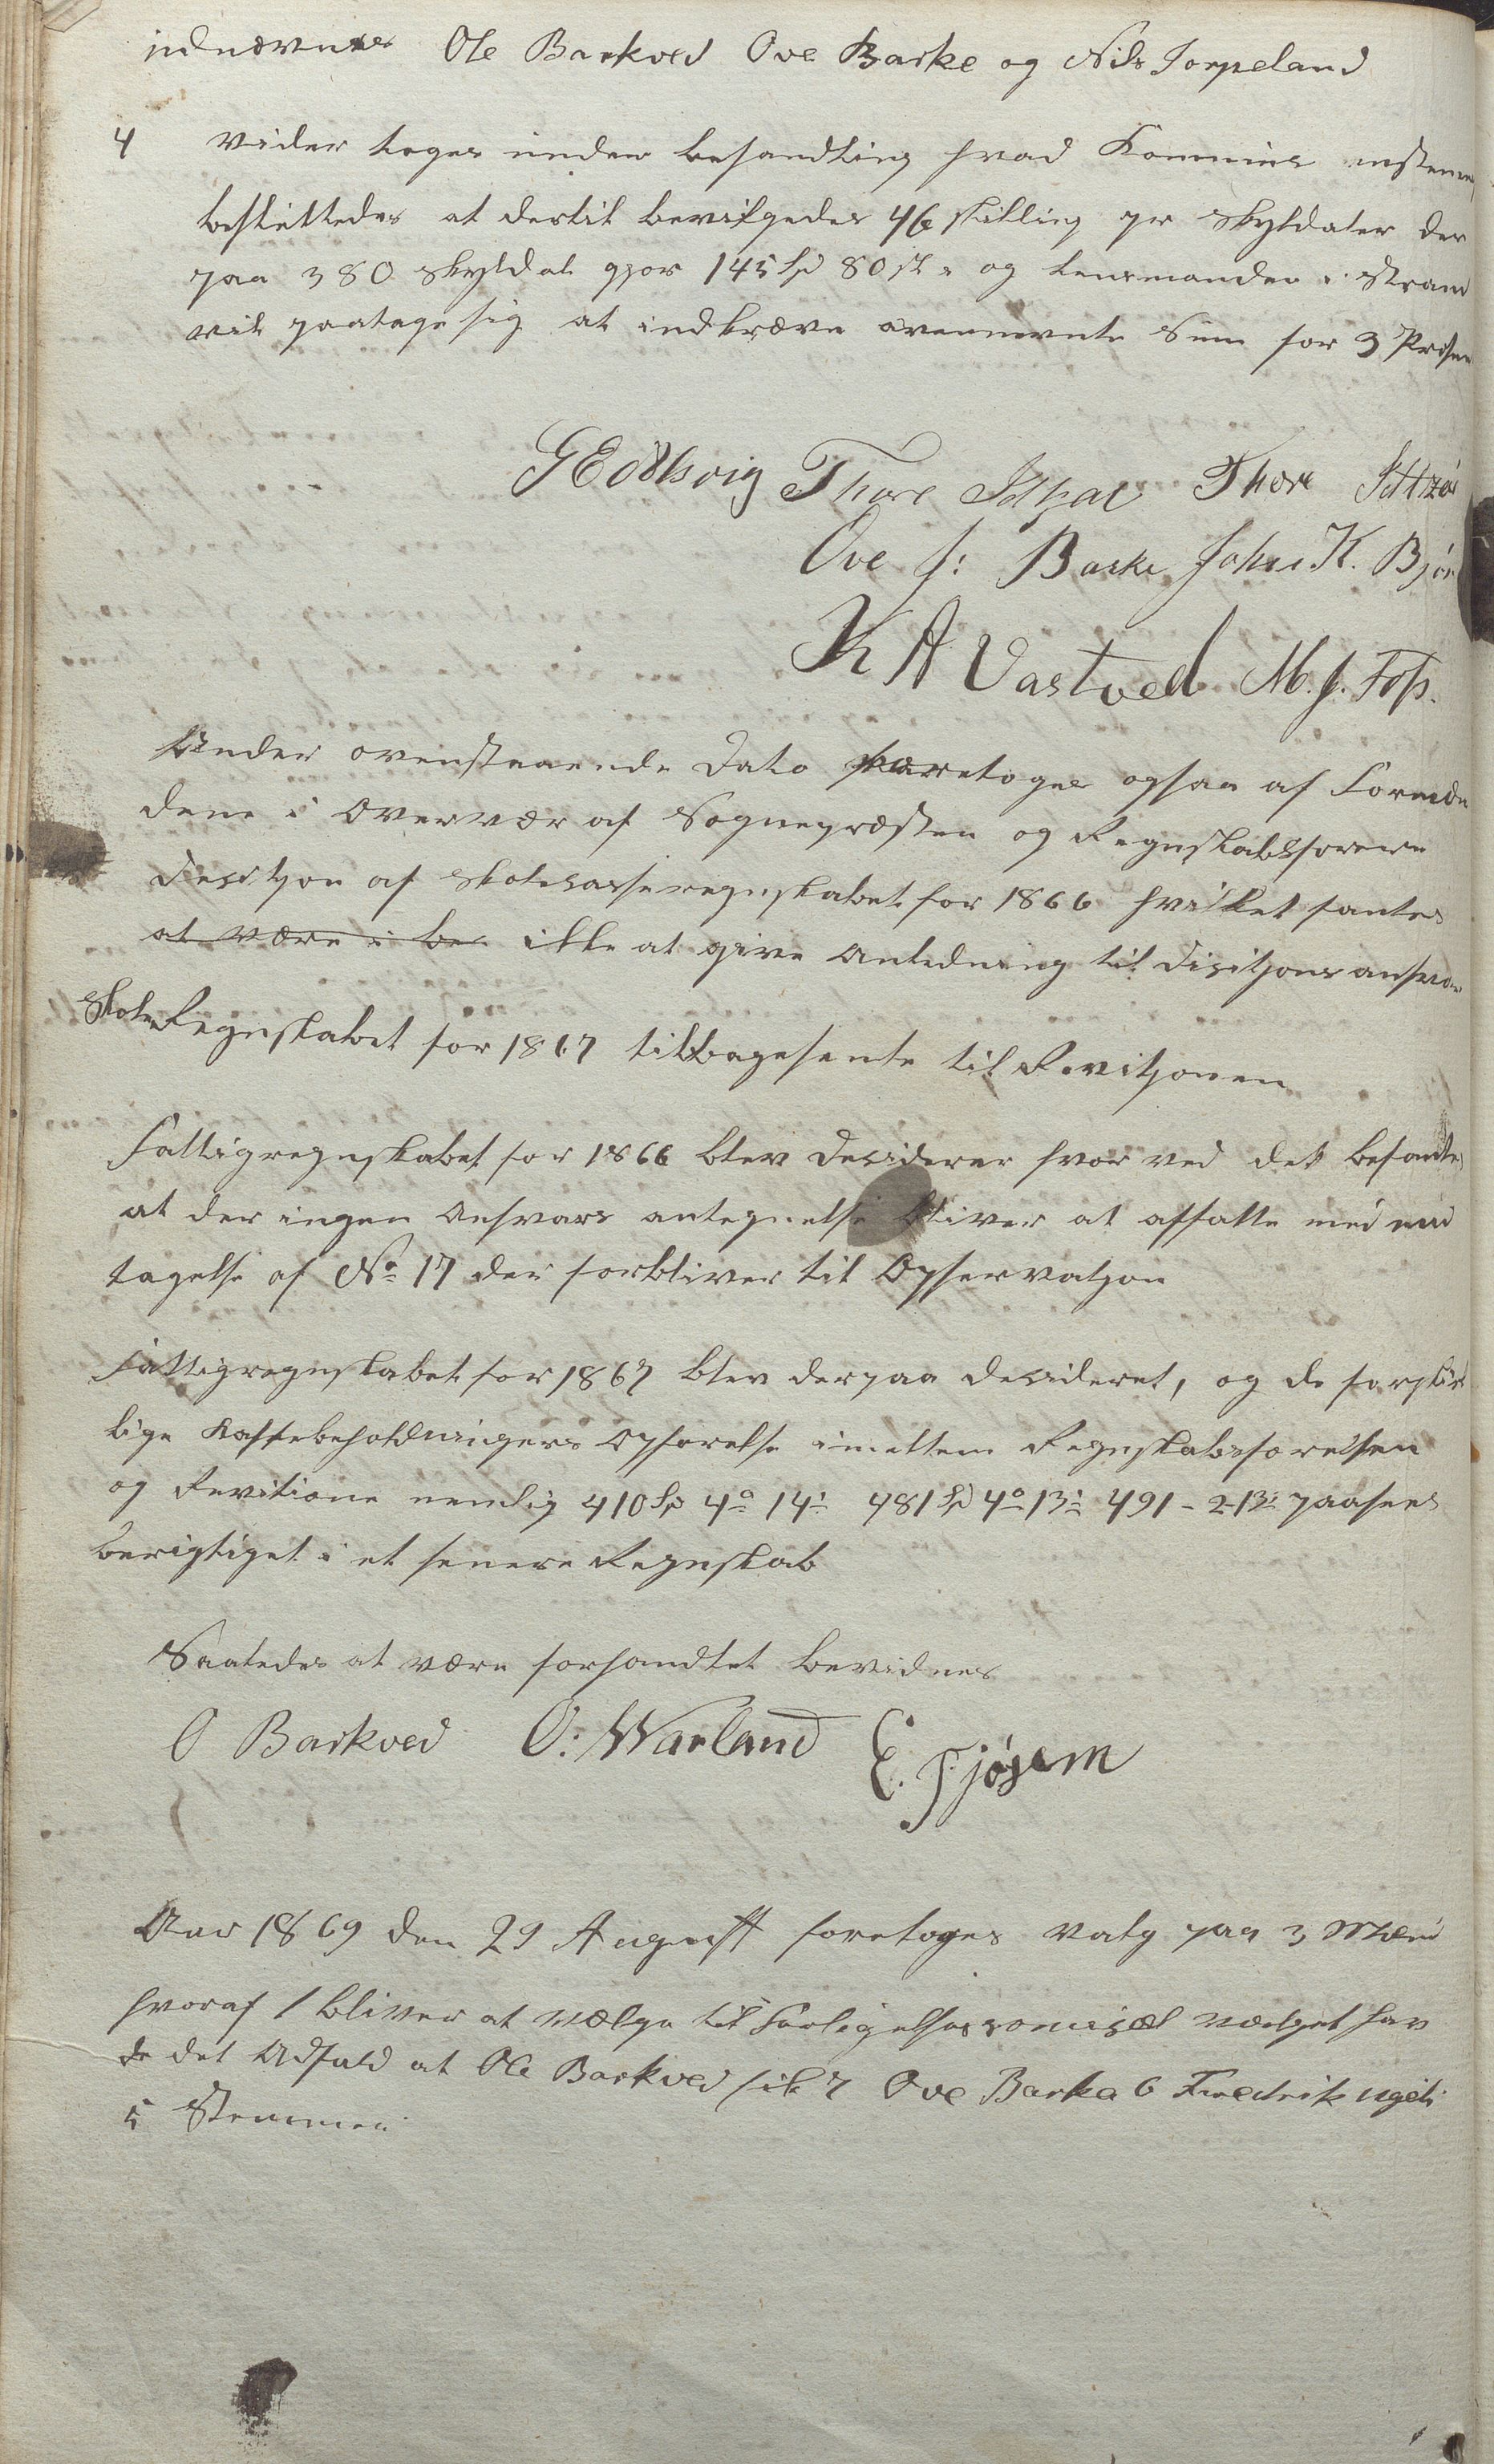 udnævntes Ole Barkved Ove Barke og Nils Jørpeland
4 Vider toges under behandling hvad Kommune
besluttedes at dertil bevilgedes 46 skilling pr Skyldaler der
paa 380 Skyldal gjør 145 Spd 80 sk: og Lensmanden i Strand
vil paatage sig at indkræve ovennevnte Sum for 3 Prosen
Thore Idsøe Thore Idsøe
Ove J: Barke John K. Bjør
K A Vastved M. J. Foss.
Under ovenstaaende Dato foretoges ogsaa af Formæn
dene i Overvær af Sognepræsten og Regnskabsførere
Desitjon af Skolekasseregnskabet for 1866 hvilket fantes
at være i be ikke at give Anledning til Disitjons ansvar
Skole Regnskabet for 1867 tilbagesente til Revitjonen
Fattigregnskabet for 1866 blev desiderer hvor ved det befantes
at der ingen Ansvars antegnelse bliver at affatte med und
tagelse af No 17 der forbliver til Opservatjon
Fattigregnskabet for 1867 blev derpaa desideret, og de forskjel
lige Kassebeholdningers Opførelse imellem Regnskabsførelsen
og Revitione nemlig 410 Spd 4o 14: 481 Spd 4o 13: 491 - 2 - 13: paasees
berigtiget i et senere Regnskab
Saaledes at være forhandlet bevidnes
O Barkved O: Warland E. Fjøsem
Aar 1869 den 29 August foretoges valg paa 3 Mænd
hvoraf 1 bliver at vælge til Forligelseskomisær valget hav
de det Udfald at Ole Barkved fik 7 Ove Barka 6 Fredrik
5 Stemmer